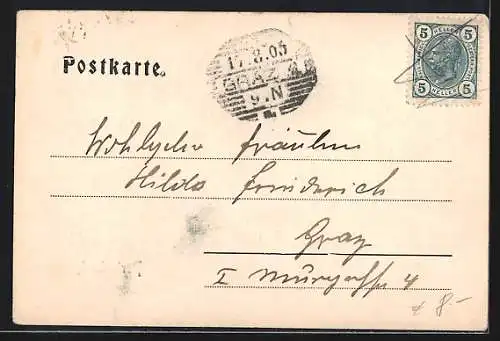 Postkarte.
17.8.05
GRAZ
9.N
5 HELLER 5
5 HELLER 5
Fräulein
Hilda Friederich
Graz
I Murgasse 4
8.-